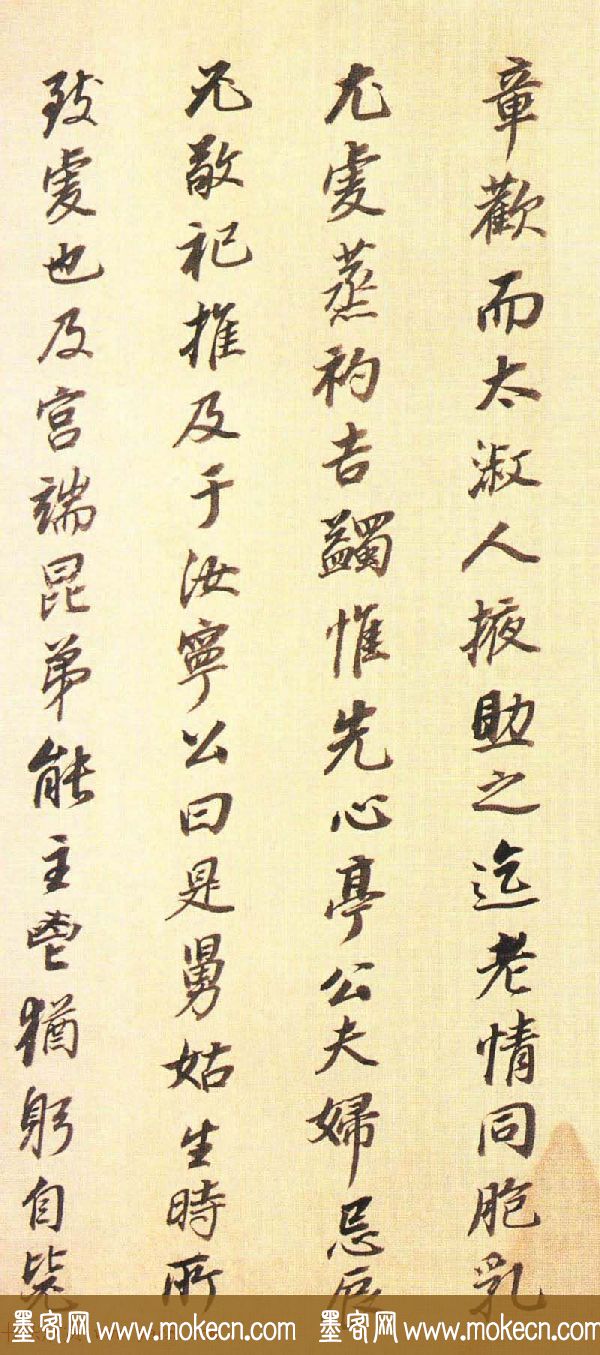 章歡而太淑人掖助之迄老情同胞乳
尤虔蒸礿吉蠲惟先心亭公夫婦忌辰
尤敬祀推及于汝寧公曰是舅姑生時所
致虔也及宮端昆弟能主鬯猶躬自
墨客网 www.mokecn.com 墨客网 www.mokecn.com